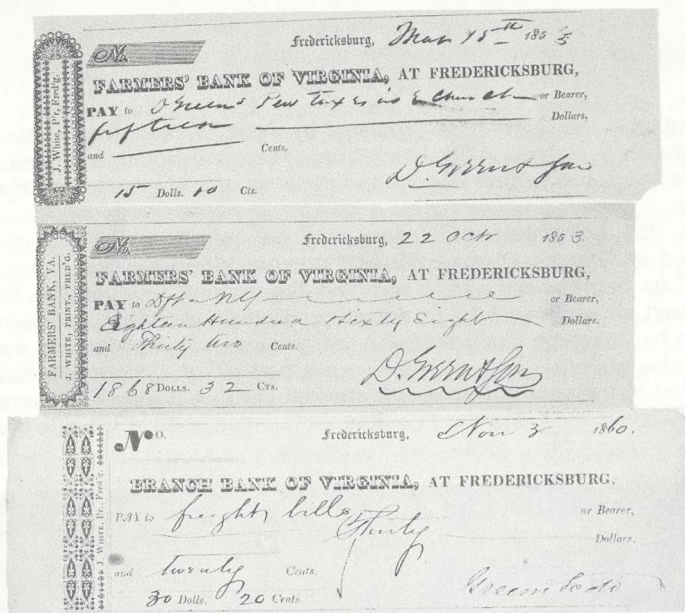 J. White, Pr, Fred'g.
No.
Fredericksburg, May 15th 1853
FARMERS' BANK OF VIRGINIA, AT FREDERICKSBURG,
PAY to D Green Pew taxes in E Church or Bearer,
fifteen Dollars,
and Cents.
15 Dolls. 10 Cts.
D. Green & Son
FARMERS' BANK, VA.
J. WHITE, PRINT., FRED'G.
No.
Fredericksburg, 22 Octr 1853.
FARMERS' BANK OF VIRGINIA, AT FREDERICKSBURG,
PAY to or Bearer,
Eighteen Hundred Sixty Eight Dollars.
and Thirty two Cents.
1868 DOLLS. 32 CTS.
D. Green & Son
J. White, Pr., Fred'g.
No.
Fredericksburg, Nov 3 1860.
BRANCH BANK OF VIRGINIA, AT FREDERICKSBURG.
PAY to freight bills or Bearer,
Thirty Dollars.
and twenty Cents.
30 Dolls. 20 Cents.
Green